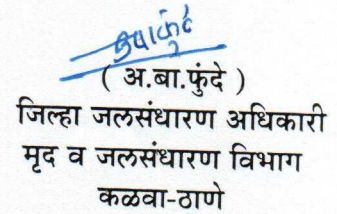 ( अ.बा.फुंदे )
जिल्हा जलसंधारण अधिकारी
मृद व जलसंधारण विभाग
कळवा-ठाणे